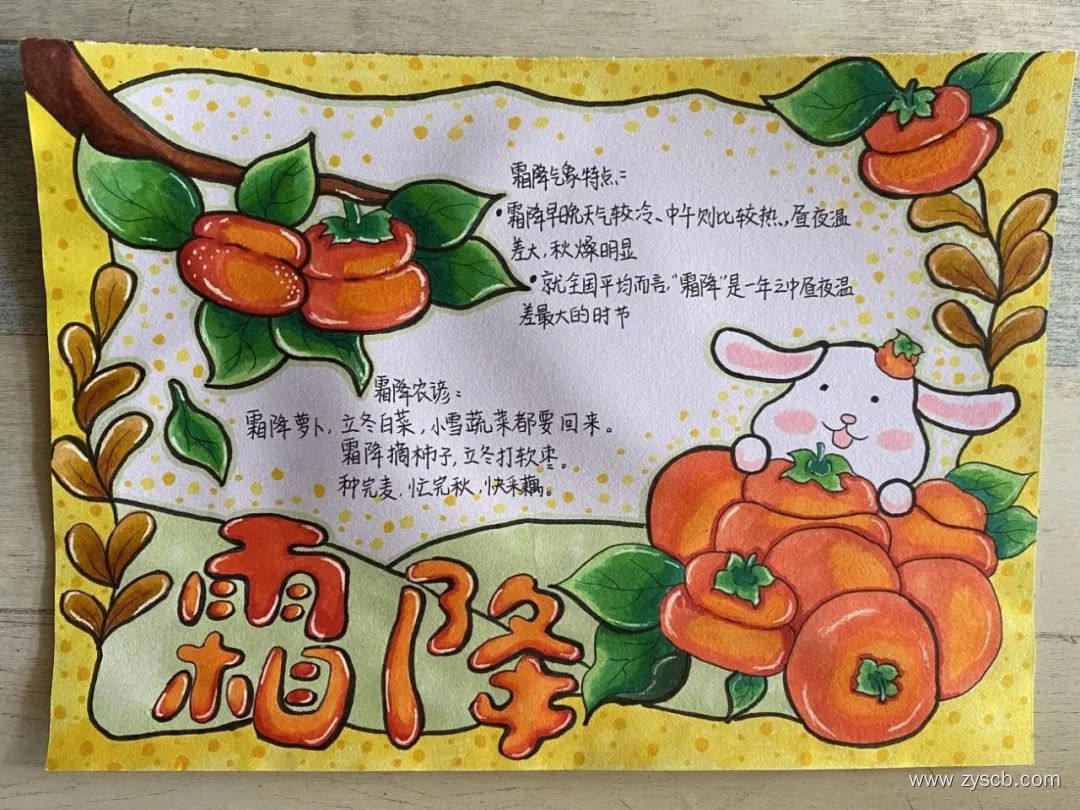 霜降气象特点:
•霜降早晚天气较冷、中午则比较热,昼夜温
差大,秋燥明显
•就全国平均而言,“霜降”是一年之中昼夜温
差最大的时节
霜降农谚:
霜降萝卜,立冬白菜,小雪蔬菜都要回来。
霜降摘柿子,立冬打软枣。
种完麦,忙完秋,快采藕。
霜降
www.zyscb.com